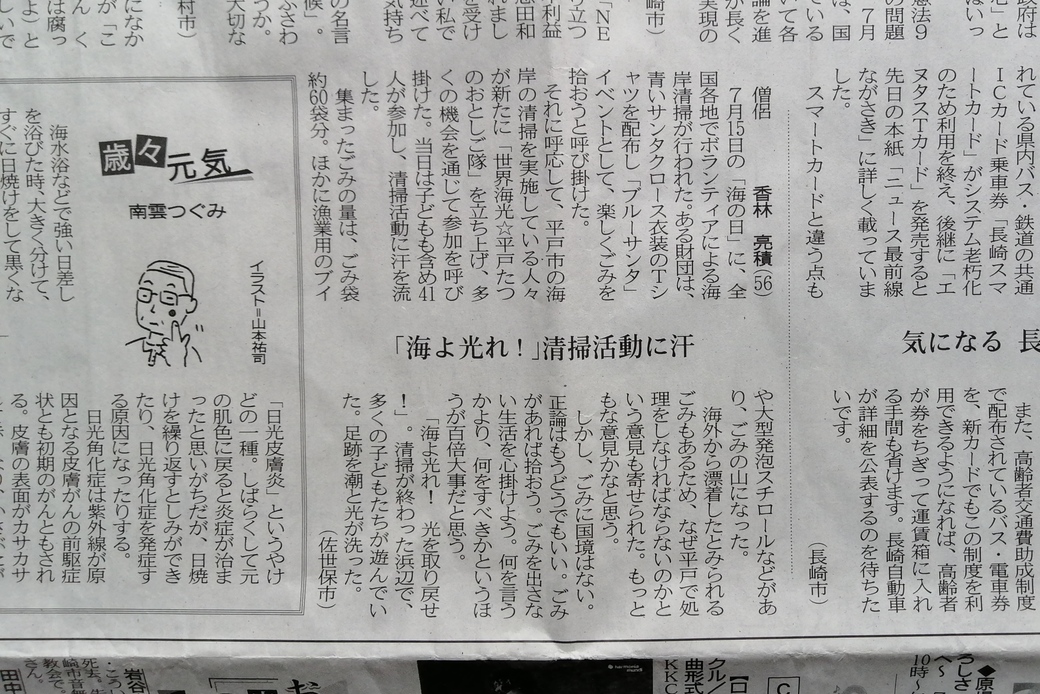 政府は
ないっ
憲法9
の問題
7月
は、国
ている
いて各
論を進
が長く
実現の
崎市）
「NE
り立つ
不利益
志田和
れまし
を受け
い私で
述べて
気持ち
の名言
候」。
ふさわ
うか。
大切な
村市）
になか
が「こ
は腐っ
よ」と
しいで
気になる 長
れている県内バス・鉄道の共通
ICカード乗車券「長崎スマ
ートカード」がシステム老朽化
のため利用を終え、後継に「エ
ヌタスTカード」を発売すると
先日の本紙「ニュース最前線
ながさき」に詳しく載っていま
した。
スマートカードと違う点も
また、高齢者交通費助成制度
で配布されているバス・電車券
を、新カードでもこの制度を利
用できるようになれば、高齢者
が券をちぎって運賃箱に入れ
る手間も省けます。長崎自動車
が詳細を公表するのを待ちた
いです。
（長崎市）
「海よ光れ！」清掃活動に汗
僧侶　香林　亮積（56）
7月15日の「海の日」に、全
国各地でボランティアによる海
岸清掃が行われた。ある財団は、
青いサンタクロース衣装のTシ
ャツを配布し「ブルーサンタ」
イベントとして、楽しくごみを
拾おうと呼び掛けた。
それに呼応して、平戸市の海
岸の清掃を実施している人々
が新たに「世界海光☆平戸たつ
のおとしご隊」を立ち上げ、多
くの機会を通じて参加を呼び
掛けた。当日は子どもも含め41
人が参加し、清掃活動に汗を流
した。
集まったごみの量は、ごみ袋
約60袋分。ほかに漁業用のブイ
や大型発泡スチロールなどがあ
り、ごみの山になった。
海外から漂着したとみられる
ごみもあるため、なぜ平戸で処
理をしなければならないのかと
いう意見も寄せられた。もっと
もな意見かなと思う。
しかし、ごみに国境はない。
正論はもうどうでもいい。ごみ
があれば拾おう。ごみを出さな
い生活を心掛けよう。何を言う
かより、何をすべきかというほ
うが百倍大事だと思う。
「海よ光れ！　光を取り戻せ
！」。清掃が終わった浜辺で、
多くの子どもたちが遊んでい
た。足跡を潮と光が洗った。
（佐世保市）
歳々元気
南雲つぐみ
イラスト＝山本祐司
海水浴などで強い日差し
を浴びた時、大きく分けて、
すぐに日焼けをして黒くな
「日光皮膚炎」というやけ
どの一種。しばらくして元
の肌色に戻ると炎症が治ま
ったと思いがちだが、日焼
けを繰り返すとしみができ
たり、日光角化症を発症す
る原因になったりする。
日光角化症は紫外線が原
因となる皮膚がんの前駆症
状とも初期のがんともされ
る。皮膚の表面がカサカサ
◆原
ろしさ
へ～
10時～
C
クル／
曲形式
KKC
岩谷
死去、
崎市音無
教会で。
さん。
田中